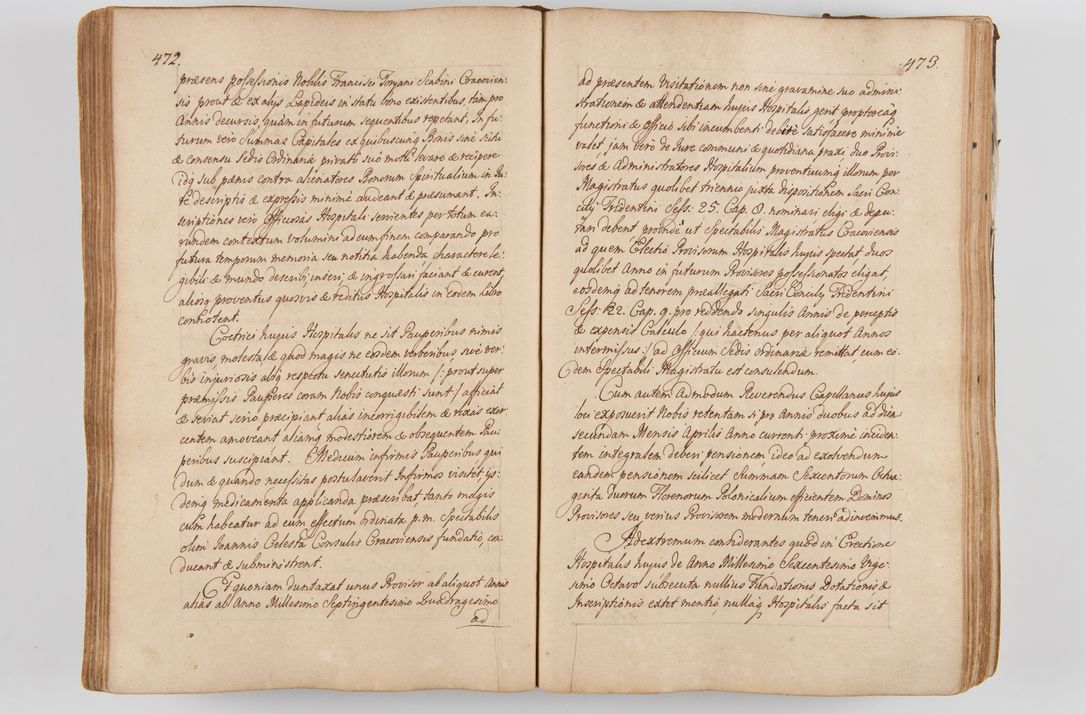 472.
præsens possessionis Nobilis Francisci Toryani Scabini Cracovien:
sis prout & ex alijs Lapideis in statu bono existentibus, tam pro
Annis decursis, quàm in futurum sequentibus repetant; In fu:
turum verò Summas Capitales ex quibuscunq Bonis sine scitu
& consensu Sedis Ordinariæ privato suo motu levare & recipere
idq sub pœnis contra alienatores Bonorum Spiritualium in Ju:
re descriptis & expressis minimè audeant & præsumant. In:
scriptiones verò Officiosas Hospitali servientes per totum ea:
rundem contextum volumine ad eum finem comparando, pro
futura temporum memoria seu notitia habenda charactere le:
gibili & mundo describi, inseri, & ingrossari faciant & curent,
aliosq proventus quosvis & reditus Hospitalis in eodem libro
connotent.
Coctrici hujus Hospitalis ne sit Pauperibus nimis
gravis, molesta & quod magis ne eosdem verberibus sivè ver:
bis injuriosis absq respectu senectutis illorum /: prout super
præmissis Pauperes coram Nobis conquæsti sunt :/ afficiat
& sæviat seriò præcipiant aliàs incorrigibilem & rixas exer:
centem amoveant aliamq modestiorem & obsequentem Pau:
peribus suscipiant. Medicum infirmis Pauperibus qui
dum & quando necessitas postulaverit Infirmos visitet ijs:
demq medicamenta applicanda præscribat, tantò magis
cum habeatur ad eum effectum ordinata p. m. Spectabilis
olim Joannis Celesta Consulis Cracoviensis fundatio, con
ducant & subministrent.
Et quoniam duntaxat unus Provisor ab aliquot Annis
aliàs ab Anno Millesimo Septingentesimo Quadragesimo
ad
473
ad præsentem Visitationem non sine gravamine suo admini:
strationem & attendentiam hujus Hospitalis gerit proptereaq
functioni & officio sibi incumbenti debitè satisfacere minimè
valet, jam verò de Jure communi & quotidiana praxi duo Provi:
sores & Administratores Hospitalium proventuumq illorum per
Magistratus quolibet triennio juxta dispositionem Sacri Con:
cilij Tridentini Sess: 25. Cap. 8. nominari eligi & depu:
tari debent proinde ut Spectabilis Magistratus Cracoviensis
ad quem Electio Provisorum Hospitalis hujus spectat duos
quolibet Anno in futurum Provisores possessionatos eligat,
eosdemq ad tenorem præallegati Sacri Concilij Tridentini
Sess: 22. Cap. 9. pro reddendo singulis Annis de perceptis
& expensis Calculo /: qui hactenus per aliquot Annos
intermissus :/ ad Officium Sedis ordinariæ remittat, eum eo:
dem Spectabili Magistratu est consulendum.
Cum autem Admodum Reverendus Capellanus hujus
loci exposuerit Nobis retentam si pro Annis duobus ad diem
secundam Mensis Aprilis Anno currenti proximè inciden:
tem integralem deberi pensionem, ideo ad exolvendum
eandem pensionem scilicet Summam Sexcentorum Octua
ginta duorum Florenorum Polonicalium efficientem Dominos
Provisores seu veriùs Provisorem modernum teneri adinvenimus.
Ad extremum considerantes quod in Erectione
Hospitalis hujus de Anno Millesimo Sexcentesimo Vige:
simo Octavo subsecuta nullius Fundationis Dotationis &
Inscriptionis extet mentio nullaq Hospitalis facta sit